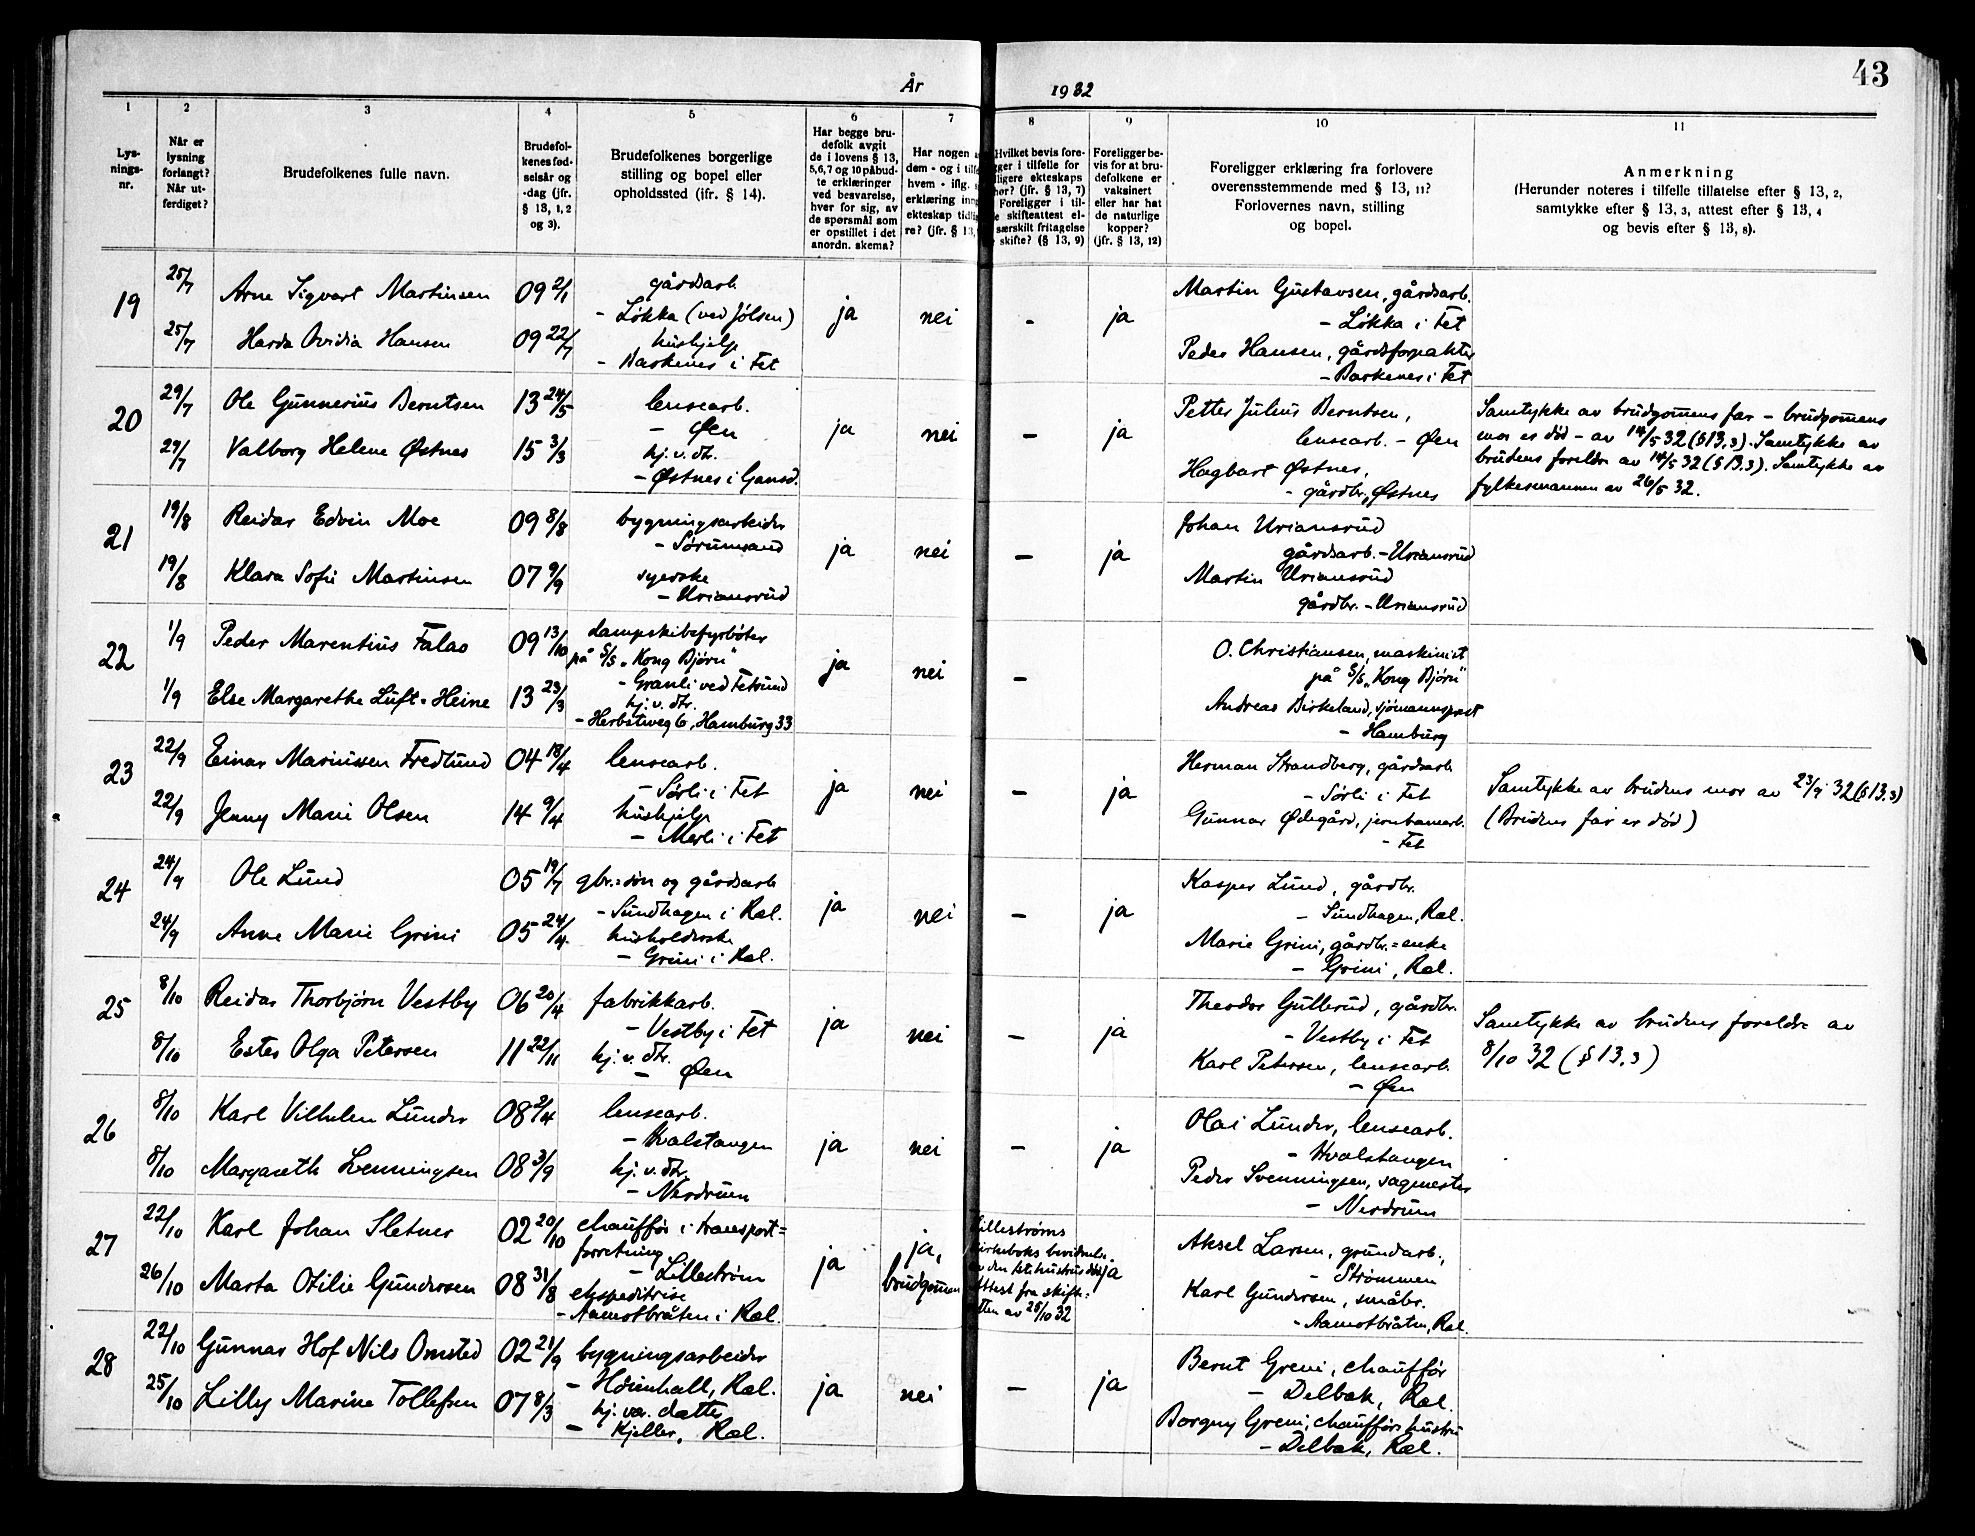 År 1932
43
1
2
3
4
5
6
7
8
9
10
11
Lys-
nings-
nr.
Når er
lysning
forlangt?
Når ut-
ferdiget?
Brudefolkenes fulle navn.
Brudefol-
kenes fød-
selsår og
-dag (jfr.
§ 13, 1, 2
og 3).
Brudefolkenes borgerlige
stilling og bopel eller
opholdssted (ifr. § 14).
Har begge bru-
defolk avgit
de i lovens § 13,
5,6,7 og 10 påbud-
te erklæringer
ved besvarelse,
hver for sig, av
de spørsmål som
er opstillet i det
anordn. skema?
Har nogen
dem - og i
hvem - iflg.
erklæring
ekteskap
re? (jfr. § 13,
Hvilket bevis fore-
ger i tilfelle for
ligere ekteskaps
hør? (jfr. § 13, 7)
Foreligger i til-
e skifteattest el-
særskilt fritagelse
skifte? (§ 13, 9)
Foreligger be-
vis for at bru-
defolkene er
vaksinert
eller har hat
de naturlige
kopper?
(jfr. § 13, 12)
Foreligger erklæring fra forlovere
overensstemmende med § 13, 11?
Forlovernes navn, stilling
og bopel.
Anmerkning
(Herunder noteres i tilfelle tillatelse efter § 13, 2,
samtykke efter § 13, 3, attest efter § 13, 4
og bevis efter § 13, 8).
19
25/7 Arne Sigvart Martinsen 09 2/1 gårdsarb.
- Løkka (ved Jølsen)
25/7 Harda Ovidia Hansen 09 22/7 hushjelp
- Barkenes i Fet
ja nei - ja
Martin Gustavsen, gårdsarb.
- Løkka i Fet
Peder Hansen, gårdsforpakter
- Barkenes i Fet
20
29/7 Ole Gunnerius Berntsen 13 24/5 lensearb.
- Øen
29/7 Valborg Helene Østnes 15 3/3 hj. v. dtr.
- Østnes i Gansd.
ja nei - ja
Petter Julius Berntsen,
lensearb. - Øen
Hagbart Østnes,
- gårdbr., Østnes
Samtykke av brudgommens far - brudgommens
mor er død - av 14/5 32 (§ 13.3). Samtykke av
brudens foreldre av 14/5 32 (§ 13.3). Samtykke av
fylkesmannen av 26/5 32.
21
19/8 Reidar Edvin Moe 09 8/8 bygningsarbeider
- Sørumsand
19/8 Klara Sofie Martinsen 07 9/9 syerske
- Uriansrud
ja nei - ja
Johan Uriansrud
gårdsarb. - Uriansrud
Martin Uriansrud
gårdbr. - Uriansrud
22
1/9 Peder Marentius Falao 09 13/10 dampskibsfyrbøter
på S/S "Kong Bjørn"
- Granli ved Fetsund
1/9 Else Margarethe Luft-Heine 13 23/3 hj. v. dtr.
- Herbstweg 6, Hamburg 33
ja nei -
O. Christiansen, maskinist
på S/S "Kong Bjørn"
Andreas Birkeland, sjømannsprest
- Hamburg
23
22/9 Einar Marinssen Fredlund 04 18/4 lensearb.
- Sørli i Fet
22/9 Jenny Marie Olsen 14 9/4 hushjelp
- Merli i Fet
ja nei - ja
Herman Strandberg, gårdsarb.
- Sørli i Fet
Gunnar Ødegård, jernbanearb.
- Fet
Samtykke av brudens mor av 23/9 32 (§ 13.3)
(Brudens far er død)
24
24/9 Ole Lund 05 19/7 gbr.=søn og gårdsarb.
- Sundhagen i Ræl.
24/9 Anne Marie Grini 05 24/4. husholderske
- Grini i Ræl.
ja nei - ja
Kasper Lund, gårdbr.
- Sundhagen, Ræl.
Marie Grini, gårdbr.=enke
- Grini, Ræl.
25
8/10 Reidar Thorbjørn Vestby 06 20/4 fabrikkarb.
- Vestby i Fet
8/10 Ester Olga Petersen 11 22/11 hj. v. dtr.
- Øen
ja nei - ja
Theodor Gullerud, gårdbr.
- Vestby i Fet
Karl Petersen, lensearb.
- Øen
Samtykke av brudens foreldre av
8/10 32 (§ 13.3)
26
8/10 Karl Vilhelm Lunder 08 2/4 lensearb.
- Hvalstangen
8/10 Margareth Svenningsen 08 3/9 hj. v. dtr.
- Nerdrum
ja nei - ja
Olai Lunder, lensearb.
- Hvalstangen
Peder Svenningsen, sagmester
- Nerdrum
27
22/10 Karl Johan Sletner 02 20/10 chauffør i transport=
forretning
- Lillestrøm
26/10 Marta Otilie Gundersen 08 31/8 ekspeditrise
- Aamotbråten i Ræl.
ja
ja,
brudgommen
Lillestrøms
kirkeboks bevidnelse
av den 1ste hustrus død
Attest fra skifte=
retten av 25/10 32
ja
Aksel Larsen, grundarb.,
- Strømmen
Karl Gundersen, småbr.
- Aamotbråten, Ræl.
28
22/10 Gunnar Hof Nils Omsted 02 21/9 bygningsarbeider
- Høienhall, Ræl.
25/10 Lilly Marine Tollefsen 07 8/3 hj. vær. datter
- Kjeller, Ræl.
ja nei - ja
Bernt Greni, chauffør
- Delbak, Ræl.
Borgny Greni, chaufførs hustru
- Delbak, Ræl.